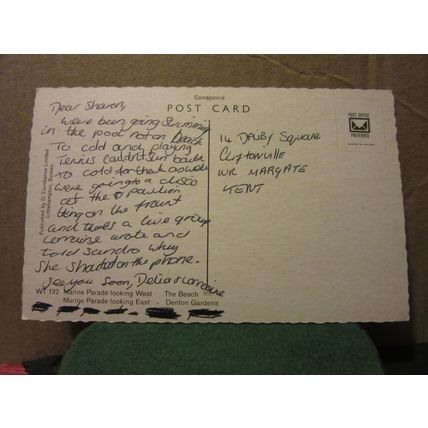 Constance
POST CARD
Dear Sharon,
Weve been going swimming
in the pool not on Beach
To cold and playing
Tennis couldn't sun bathe
to cold for that aswell
were going to a disco
at the pavilion
on the front
and theres a live group
Lorraine wrote and
told Sandra why
She shouted on the phone.
See you soon, Delia & Lorraine
14 DALBY SQUARE
Cliftonville
NR MARGATE
KENT
POST OFFICE
PREFERRED
Published by D. Constance Limited
Littlehampton, Sussex
WT 132 Marine Parade looking West The Beach
Marine Parade looking East Denton Gardens